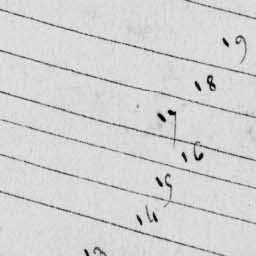 19
18
17
16
15
14